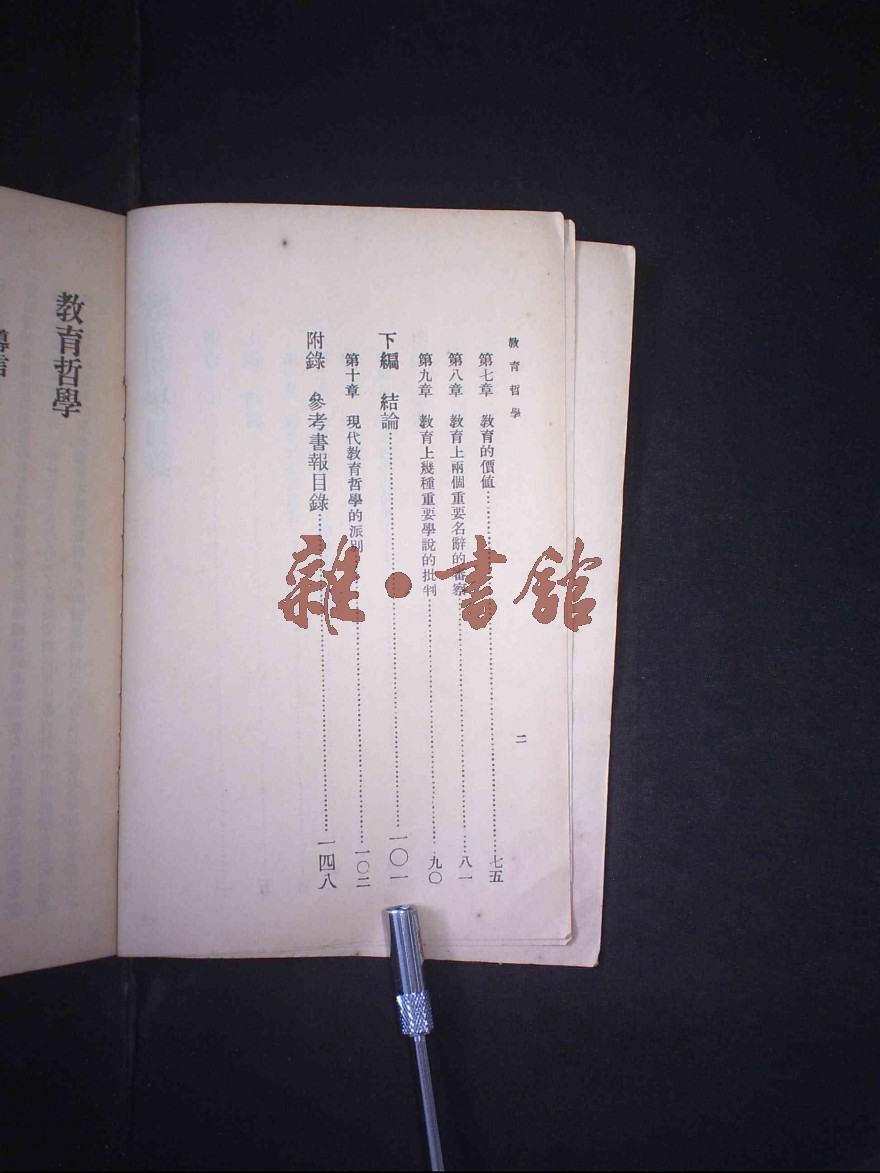 教育哲學
二
第七章 教育的價値…………七五
第八章 教育上兩個重要名辭的審察…………八一
第九章 教育上幾種重要學說的批判…………九〇
下編 結論…………一〇一
第十章 現代教育哲學的派別…………一〇二
附錄 參考書報目錄…………一四八
教育哲學
雜·書館